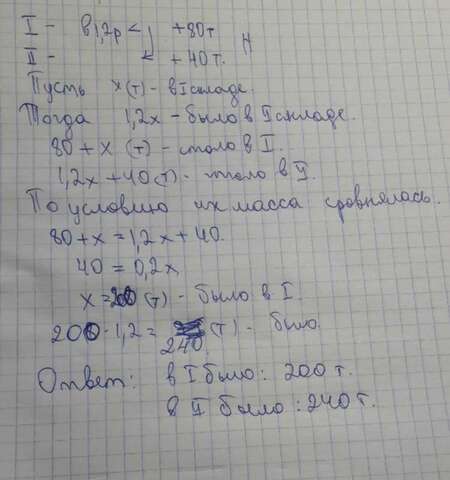 I - в 1,2 р < +80т
II - < +40т.
Пусть x (т) - в I складе.
Тогда 1,2x - было в II складе.
80 + x (т) - стало в I.
1,2x + 40 (т) - стало в II.
По условию их масса сравнялась.
80 + x = 1,2x + 40.
40 = 0,2x
x = 200 (т) - было в I.
200 · 1,2 = 240 (т) - было
Ответ: в I было: 200 т.
в II было: 240 т.